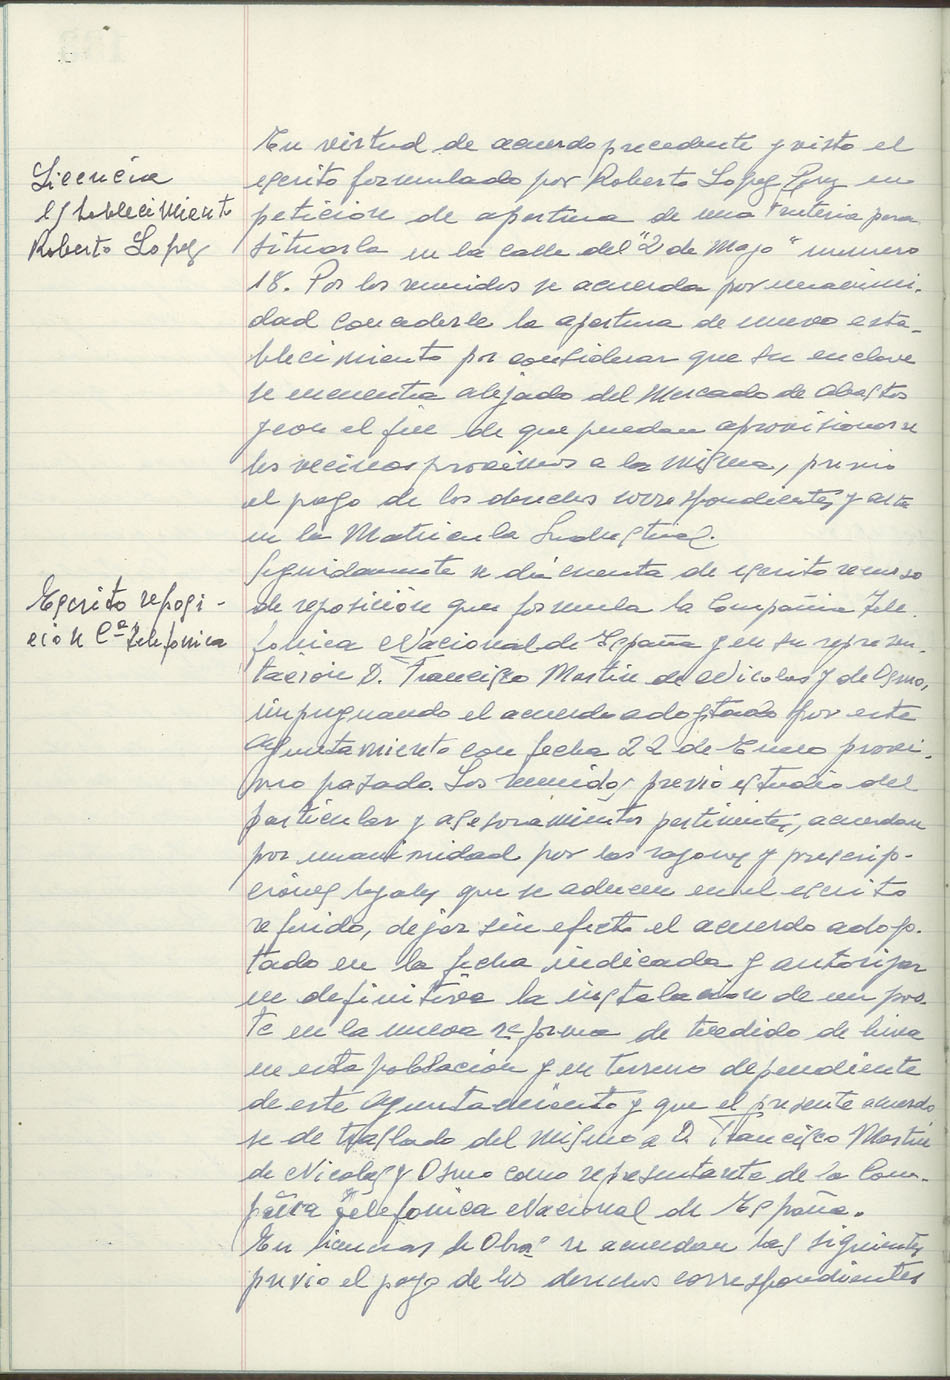 Licencia
establecimiento
Roberto Lopez
En virtud de acuerdo precedente y visto el
escrito formulado por Roberto Lopez en
peticion de apertura de una para
situarla en la calle del "2 de Mayo" numero
18. Por los reunidos se acuerda por unanimi-
dad concederle la apertura de nuevo esta-
blecimiento por considerar que su enclave
se encuentra alejado del Mercado de Abastos
y con el fin de que puedan aprovisionarse
los vecinos proximos a la misma, previo
el pago de los derechos correspondientes y alta
en la Matricula Industrial.
Escrito reposi-
ción Cª Telefonica
Seguidamente se dá cuenta de escrito recurso
de reposición que formula la Compañia Tele-
fonica Nacional de España y en su represen-
tación D. Francisco Martin de Nicolas y de Osmo,
impugnando el acuerdo adoptado por este
Ayuntamiento con fecha 22 de Enero proxi-
mo pasado. Los reunidos previo estudio del
particular y asesoramientos pertinentes, acuerdan
por unanimidad por las razones y prescrip-
ciones legales que se aducen en el escrito
referido, dejar sin efecto el acuerdo adop-
tado en la fecha indicada y autorizar
en definitiva la instalacion de un pos-
te en la nueva reforma de tendido de linea
en esta poblacion y en terreno dependiente
de este Ayuntamiento y que el presente acuerdo
se de traslado del mismo a D. Francisco Martin
de Nicolas y Osmo como representante de la Com-
pañia Telefonica Nacional de España.
En licencias de Obras se acuerdan las siguientes
previo el pago de los derechos correspondientes